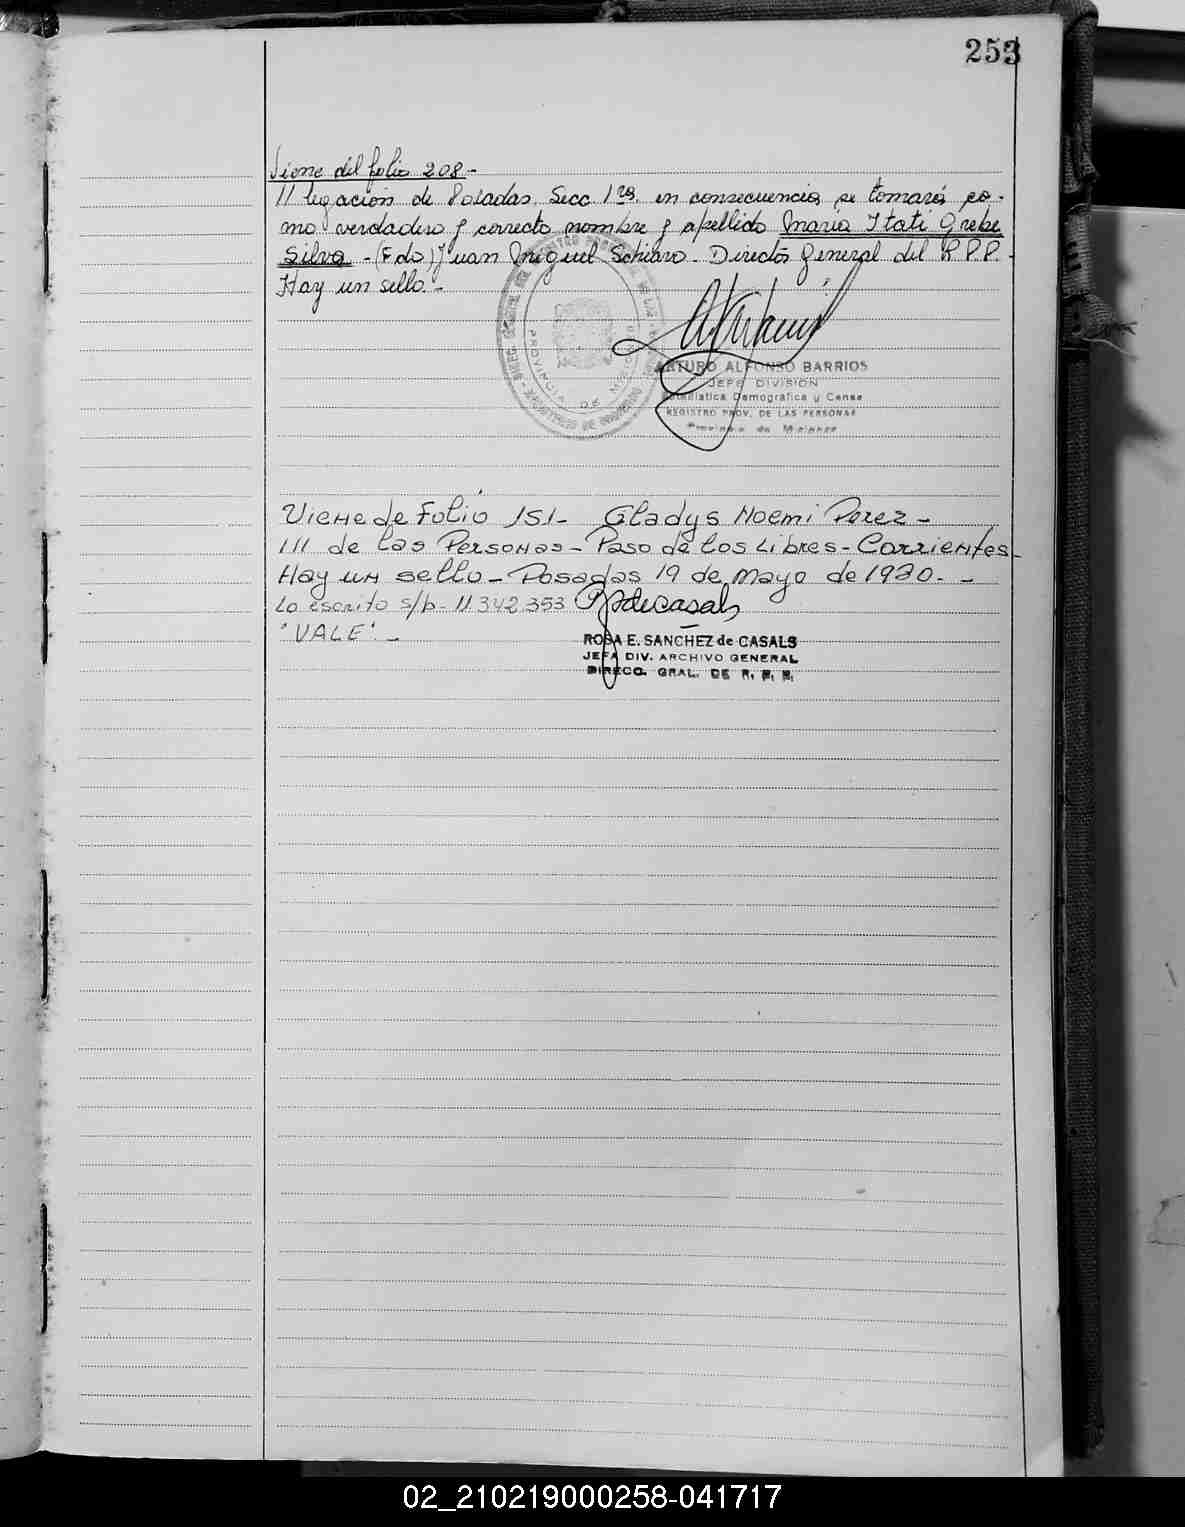 253
Viene del folio 208-
// legación de Posadas, Secc 1ra. en consecuencia se tomará co-
mo verdadero y correcto nombre y apellido Maria Itati Grebe
Silva - (Fdo) Juan Miguel Schiavo - Director General del R.P.P.-
Hay un sello.-
PROVINCIA DE MISIONES
ARTURO ALFONSO BARRIOS
JEFE DIVISION
Estadistica Demografica y Censo
REGISTRO PROV. DE LAS PERSONAS
Provincia de Misiones
Viene de Folio 151- Gladys Noemi Perez-
/// de las Personas- Paso de los Libres- Corrientes-
Hay un sello- Posadas 19 de Mayo de 1980.-
Lo escrito s/b- 11.342.353
"VALE".-
ROSA E. SANCHEZ de CASALS
JEFA DIV. ARCHIVO GENERAL
DIRECC. GRAL. DE R. P. P.
02_210219000258-041717